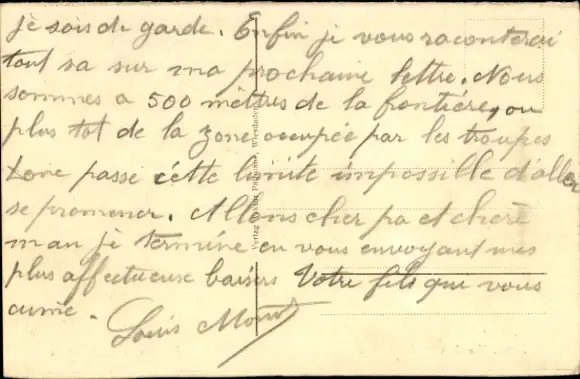 je sois de garde. Enfin je vous raconterai
tout sa sur ma prochaine lettre. Nous
sommes a 500 mêttres de la frontiére, ou
plus tot de la zone occupée par les troupes
Donc passé cétte limite impossible d'aller
se promener. Allons cher pa et chere
man je termine en vous envoyant mes
plus affectueuse baisers Votre fils que vous
aime.
Louis
Verlag Wiesbaden